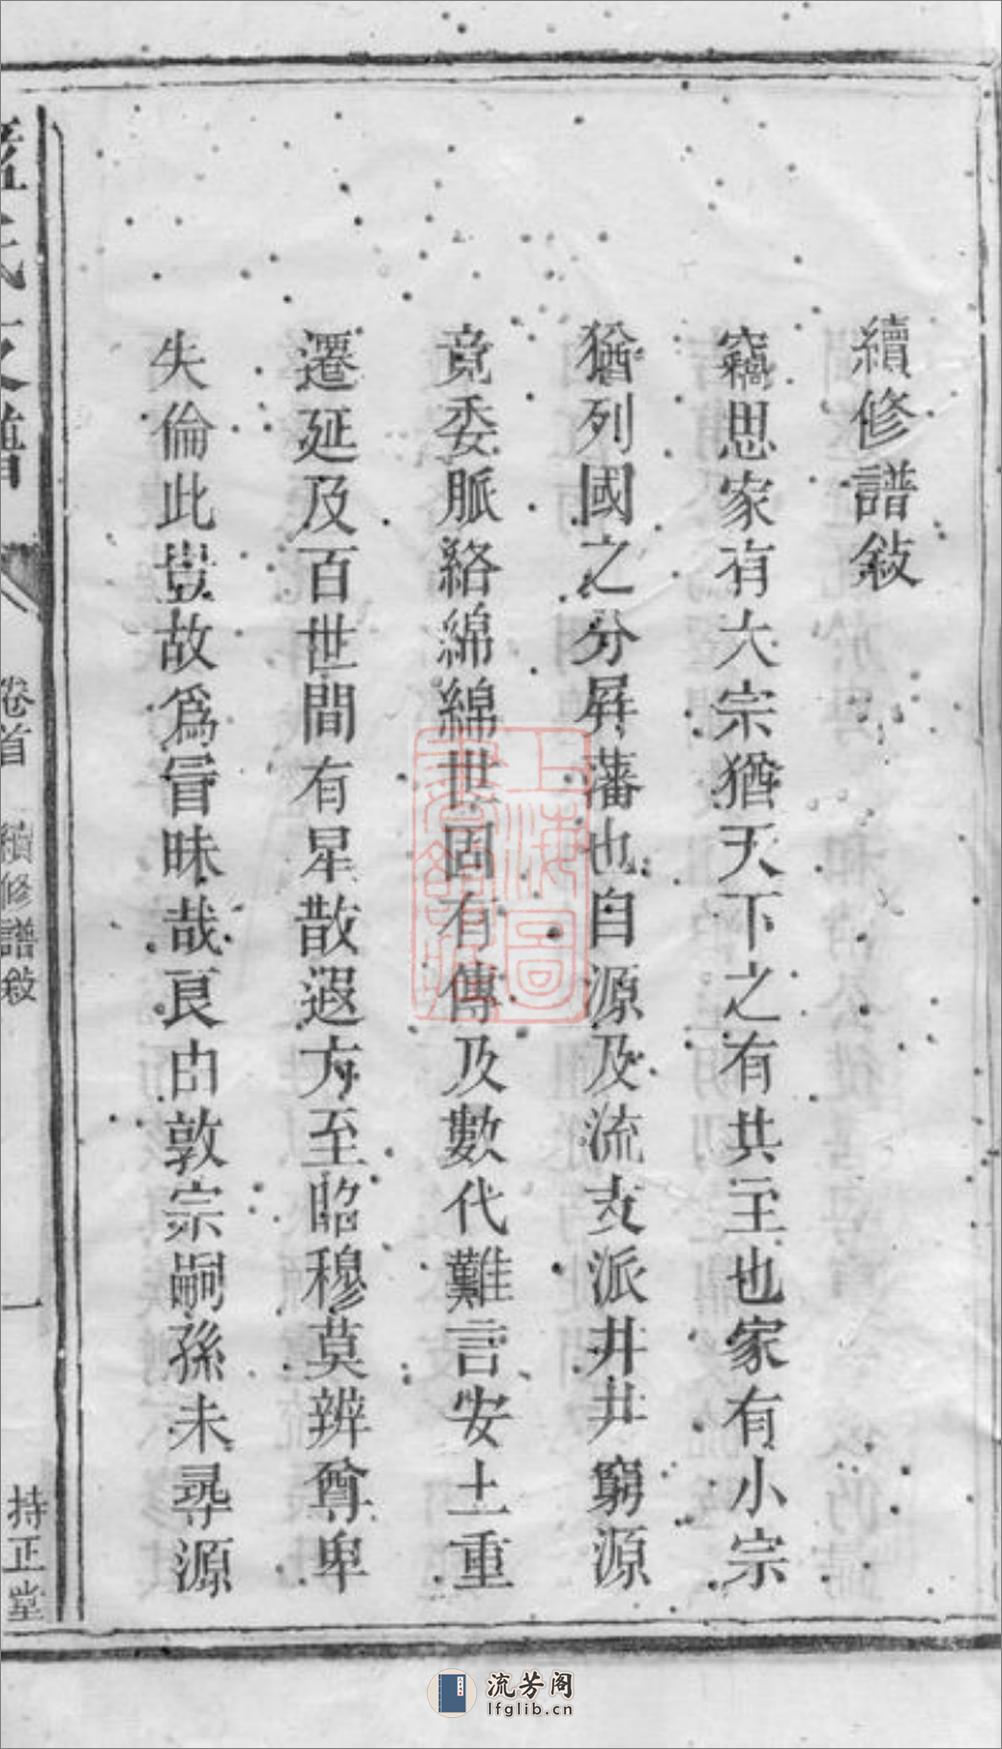 續修譜敍
竊思家有大宗猶天下之有共主也家有小宗
猶列國之分屛藩也自源及流支派井井窮源
竟委脈絡綿綿世固有傳及數代難言安土重
遷延及百世間有星散遐方至昭穆莫辨尊卑
失倫此豈故爲冒昧哉良由敦宗嗣孫未尋源
氏支譜
卷首
續修譜敍
一
持正堂
上海圖書館藏
流芳阁
lfglib.cn